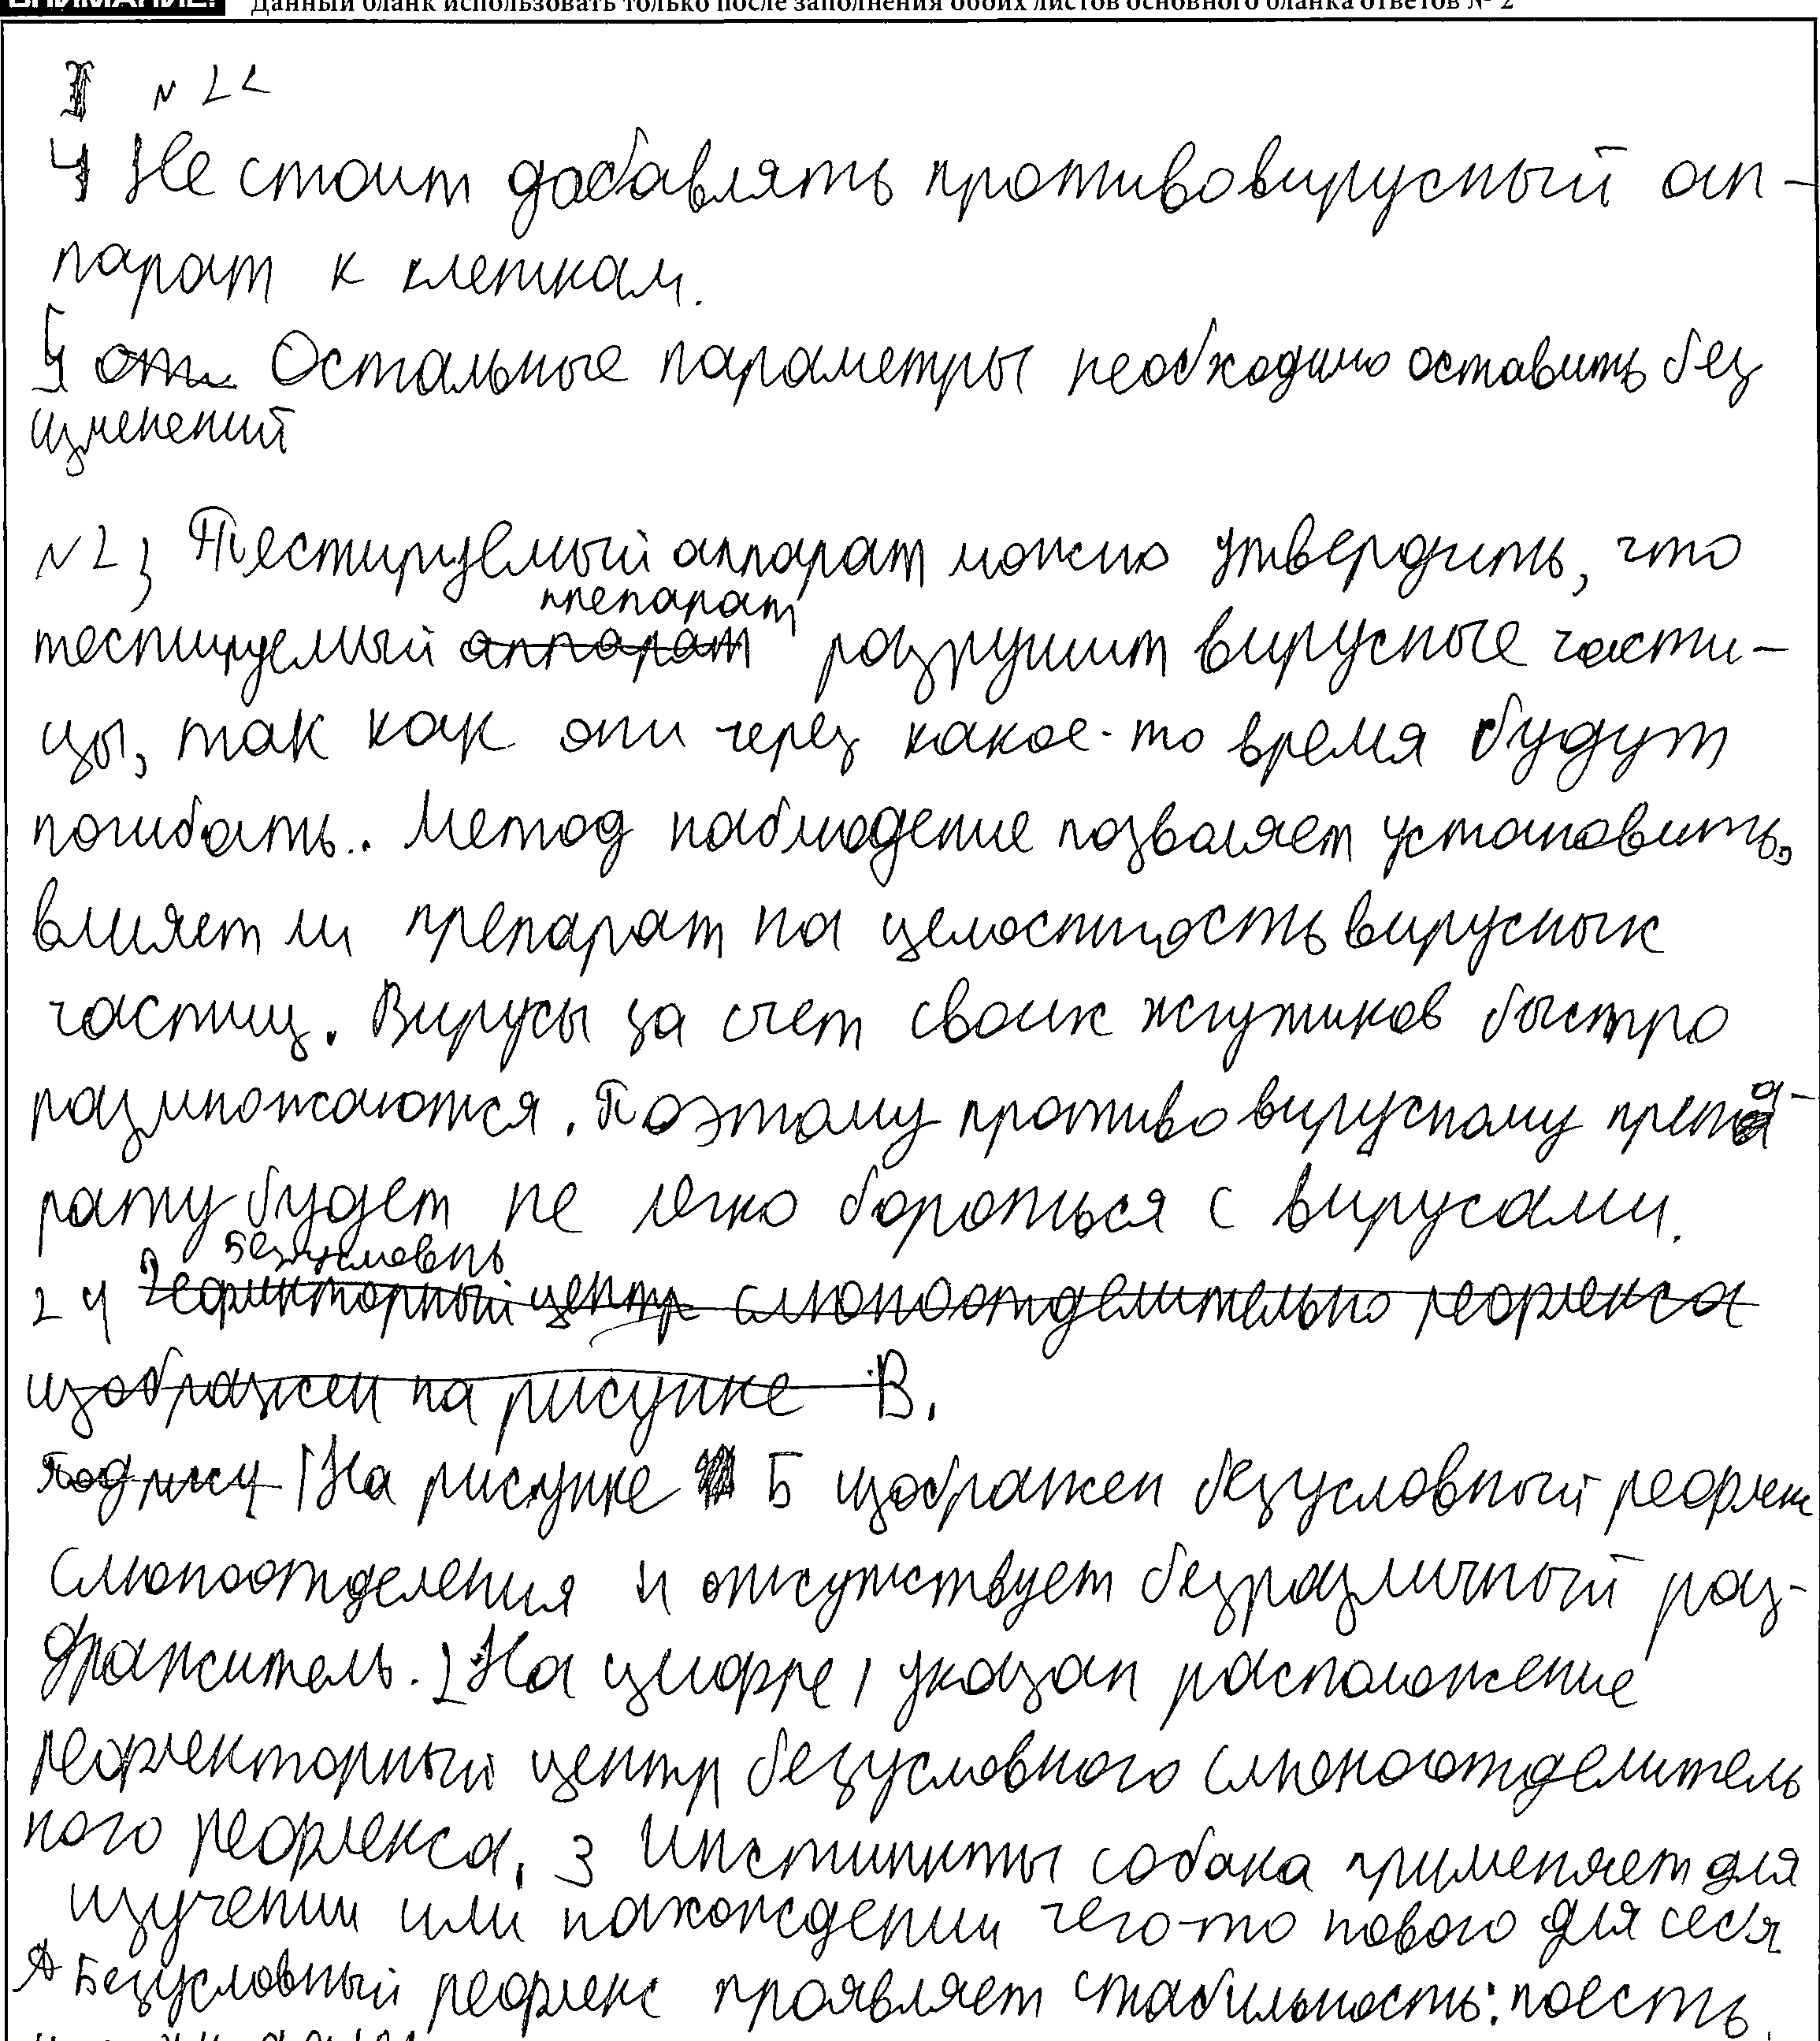 ВНИМАНИЕ! Данный бланк использовать только после заполнения обоих листов основного бланка ответов № 2
№ 22
4 Не стоит добавлять противовирусный ап-
парат к клеткам.
5 от Остальные параметры необходимо оставить без
изменений
№ 23 Тестируемый аппарат можно утвердить, что
препарат
тестируемый аппарат разрушит вирусные части-
цы, так как они через какое-то время будут
погибать.. Метод наблюдение позволяет установить,
влияет ли препарат на целостность вирусных
частиц. Вирусы за счет своих жгутиков быстро
размножаются. Поэтому противовирусному препа-
рату будет не легко бороться с вирусами.
безусловнь
24 Рефлекторный центр слюноотделительно рефлекса
изображен на рисунке В.
Под рису 1 На рисунке Б изображен безусловный рефлекс
слюноотделения и отсутствует безразличный раз-
дражитель. 2 На цифре 1 указан расположение
рефлекторный центр безусловного слюноотделитель
ного рефлекса. 3 Инстинкты собака применяет для
изучении или нахождении чего-то нового для себя
Безусловный рефлекс проявляет стабильность: поесть,